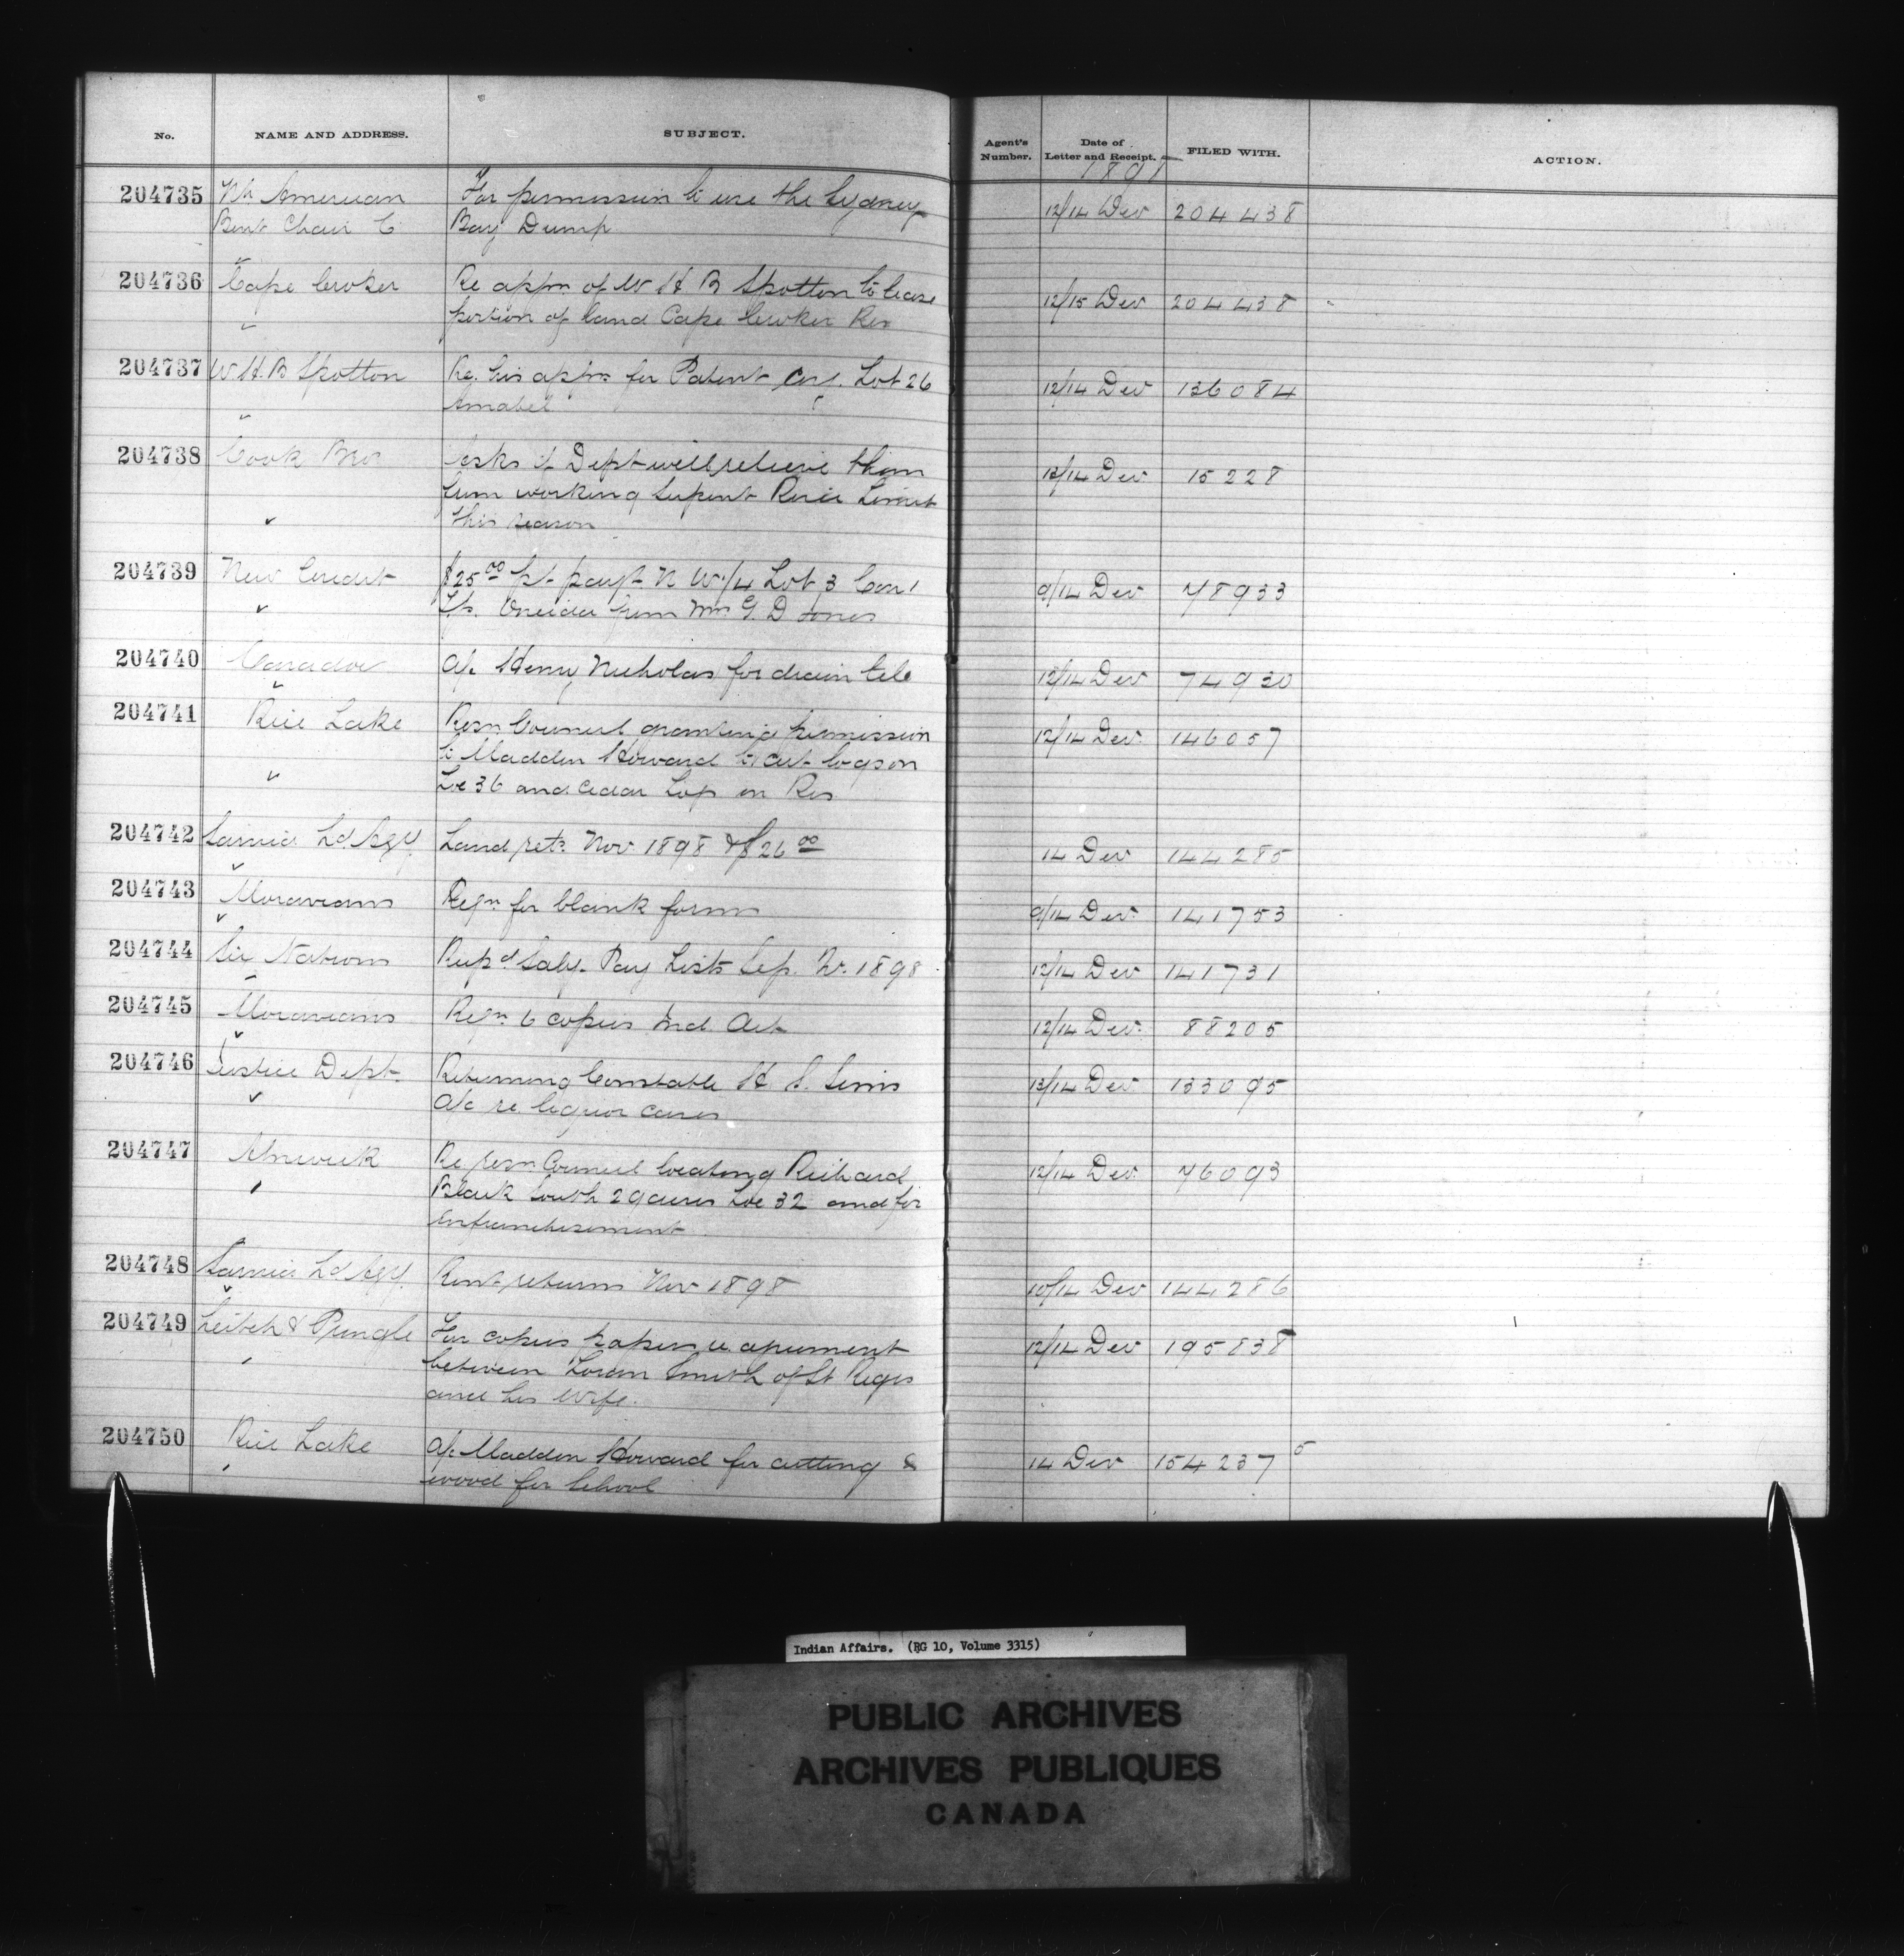 No. NAME AND ADDRESS. SUBJECT. Agent's Number. Date of Letter and Receipt. FILED WITH. ACTION.
189
204735 Nh American For permission to use the Sydney 12/14 Dec 204438
Bent Chair Co Bay Dump
204736 Cape Croker Re appn of W H B Spotton to lease 12/15 Dec 204438
portion of land Cape Croker Res
204737 W H. B Spotton Re. his appn for Patent Lot 26 12/14 Dec 136084
Amabel
204738 Cook Bros Asks if Dept will relieve them 13/14 Dec 15228
from working Serpent River Limit
this season
204739 New Credit $25.00 pt payt N W 1/4 Lot 3 Con 1 9/14 Dec 78933
Tp. Oneida from Mrs G. D Jones
204740 Caradoc a/c Henry Nicholas for drain tile 12/14 Dec 74930
204741 Rice Lake Resn Council granting permission 12/14 Dec. 146057
to Madden Howard to cut logs on
Loc 36 and cedar on Res
204742 Sarnia Ld Agy. Land retn Nov 1898 & $26.00 14 Dec 144285
204743 Moravians Reqn for blank forms 9/14 Dec. 141753
204744 Six Nations Supd Saly. Pay Lists Sep. Qr. 1898 12/14 Dec 141731
204745 Moravians Reqn 6 copies Ind Act 12/14 Dec. 88205
204746 Justice Dept. Returning Constable H. S. 13/14 Dec 133095
a/c re liquor cases
204747 Alnwick Re resn Council locating Richard 12/14 Dec. 76093
Black South 29 acres Loc 32 and for
enfranchisement
204748 Sarnia Ld Agy. Rent returns Nov 1898 10/14 Dec 144286
204749 Leitch & Pringle For copies papers re agreement 12/14 Dec 195838
between Loran Smith of St Regis
and his wife.
204750 Rice Lake a/c Madden Howard for cutting 14 Dec 154237 5
wood for School
Indian Affairs. (RG 10, Volume 3315)
PUBLIC ARCHIVES
ARCHIVES PUBLIQUES
CANADA